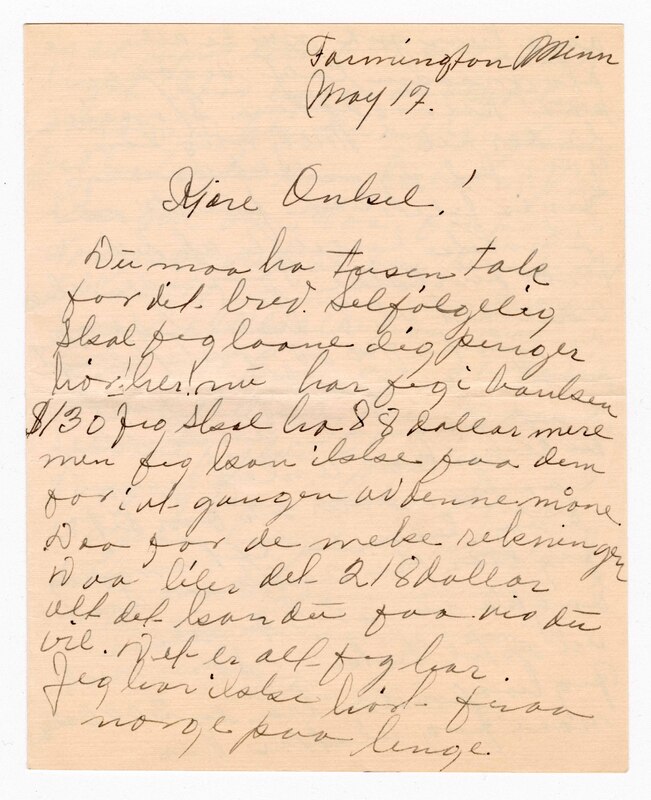 Farmington Minn
May 17.
Kjære Onksel!
Du maa ha tusen tak
for dit brev. Selfølgelig
skal jeg laane dig penger
hør! her! nu har jeg i banksen
$130 Jeg skal ha 88 dollar mere
men jeg kan ikske faa dem
for i ut gangen av denne måne
Daa for de meke rekninger
Daa bler det 218 dollar
alt det kan du faa vis du
vil. Det er alt jeg har.
Jeg har ikske hørt fraa
norge paa lenge.